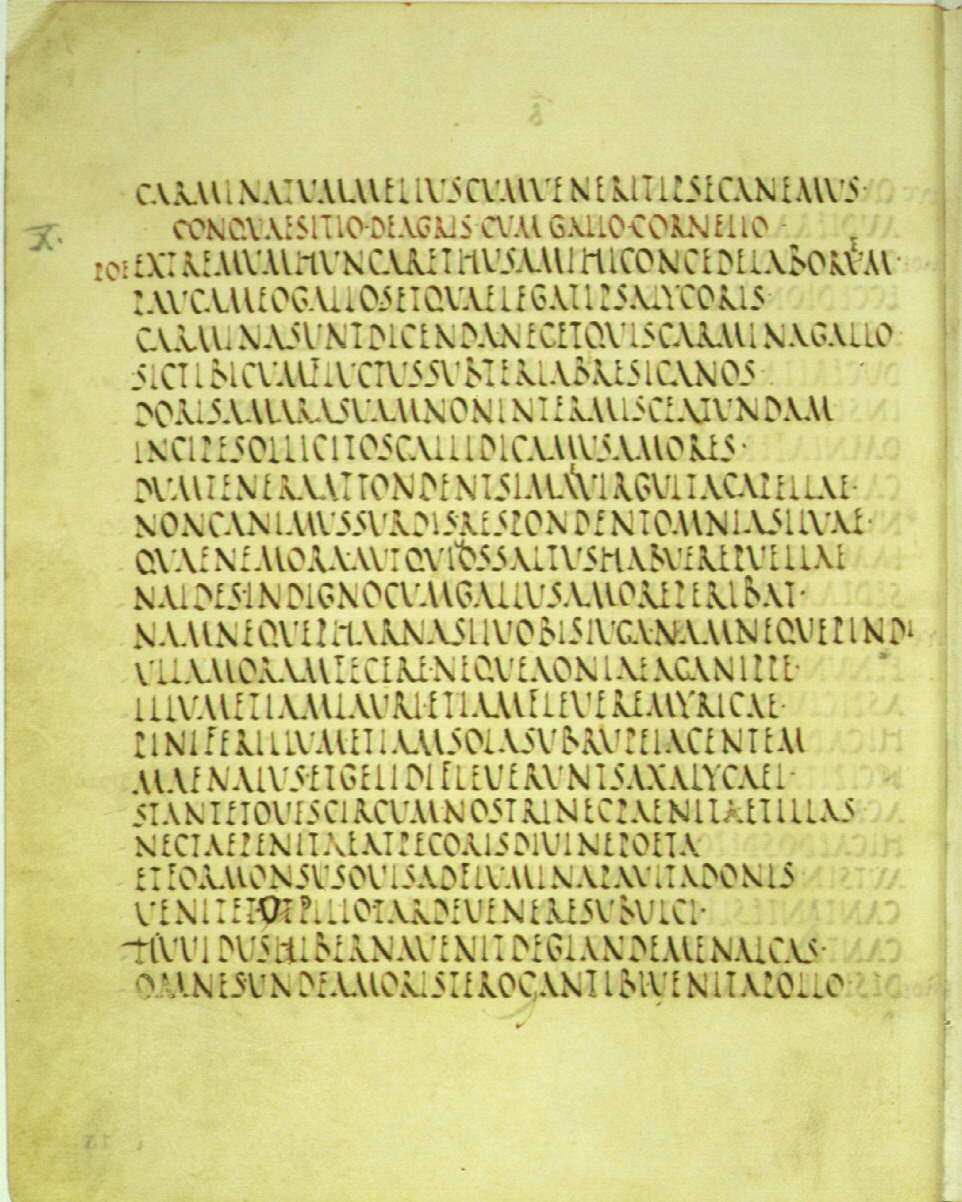 CARMINATVMMELIVSCVMVENERITIPSECANEMVS·
CONQVAESITIO·DEAGRIS·CVM GALLO·CORNELIO
X·
POE EXTREMVMHVNCARETHVSAMIHICONCEDELABOREM·
PAVCAMEOGALLOSETQVAELEGATIPSALYCORIS
CARMINASVNTDICENDANEGETQVISCARMINAGALLO
SICTIBICVMFLVCTVSSVBTERLABRESICANOS
DORISAMARASVAMNONINTERMISCEATVNDAM
INCIPESOLLICITOSGALLIDICAMVSAMORES·
DVMTENERAATTONDENTSIMAEVIRGVLTACAPELLAE·
NONCANIMVSSVRDISRESPONDENTOMNIASILVAE·
QVAENEMORA·AVTQVIOSSALTVSHABVEREPVELLAE
NAIDES·INDIGNOCVMGALLVSAMOREPERIBAT·
NAMNEQVEPHARNASIIVOBISIVGA·NAMNEQVEPINDI
VLLAMORAMFECERE·NEQVEAONIAEAGANIPPE·
ILLVMETIAMLAVRI·ETIAMFLEVEREMYRICAE·
PINIFERILLVMETIAMSOLASVBRVPEIACENTEM
MAENALVS·ETGELIDIFLEVERVNTSAXALYCAEI·
STANTETOVESCIRCVMNOSTRINECPAENITAETILLAS
NECTAEPENITAEATPECORISDIVINEPOETA
ETFORMONSVSOVISADFLVMINAPAVITADONIS
VENITETOPILIOTARDEVENERESVBVLCI·
HVVIDVSHIBERNAVENITDEGLANDEMENALCAS·
OMNESVNDEAMORISTEROGANTTIBIVENITAPOLLO·